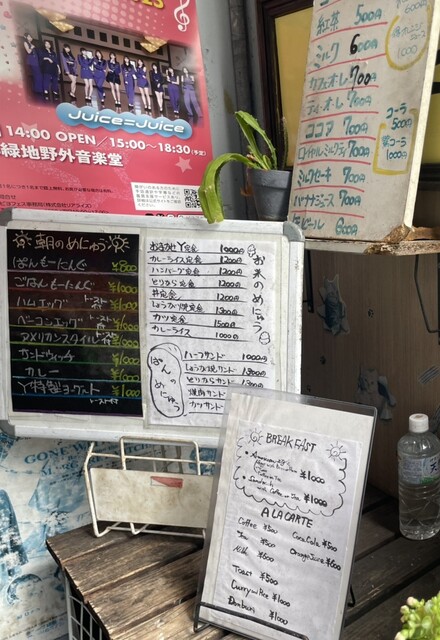 Juice=Juice
14:00 OPEN/15:00〜18:30(予定)
緑地野外音楽堂
紅茶 500円
ミルク 600円
カフェオーレ 700円
ティーオーレ 700円
ココア 700円
ロイヤルミルクティ 700円
ミルクセーキ 700円
バナナジュース 700円
ビール 600円
コーラ
500円
1000円
朝のめにゅう
ぱんもーにんぐ ¥800
ごはんもーにんぐ ¥1000
ハムエッグ トースト付 ¥1000
ベーコンエッグ トースト付 ¥1000
アメリカンスタイル トースト付 ¥1000
サンドウィッチ ¥1000
カレー ¥1000
Y特製ヨーグルト ¥1000
トースト付
お米のめにゅう
1000円
カレーライス定食 1200
ハンバーグ定食 1200
とりから定食 1200
丼定食 1200
しょうが焼定食 1300
カツ定食 1500
カレーライス 1000
ぱんのめにゅう
ハーフサンド 1000円
しょうが焼サンド 1300
とりからサンド 1300
焼肉サンド
カツサンド
BREAKFAST
¥1000
Sandwich
with Coffee or Tea ¥1000
A LA CARTE
Coffee ¥500 Coca Cola ¥500
Tea ¥500 Orange Juice ¥600
Milk ¥600
Toast ¥500
Curry and Rice ¥1000
Donburi ¥1000